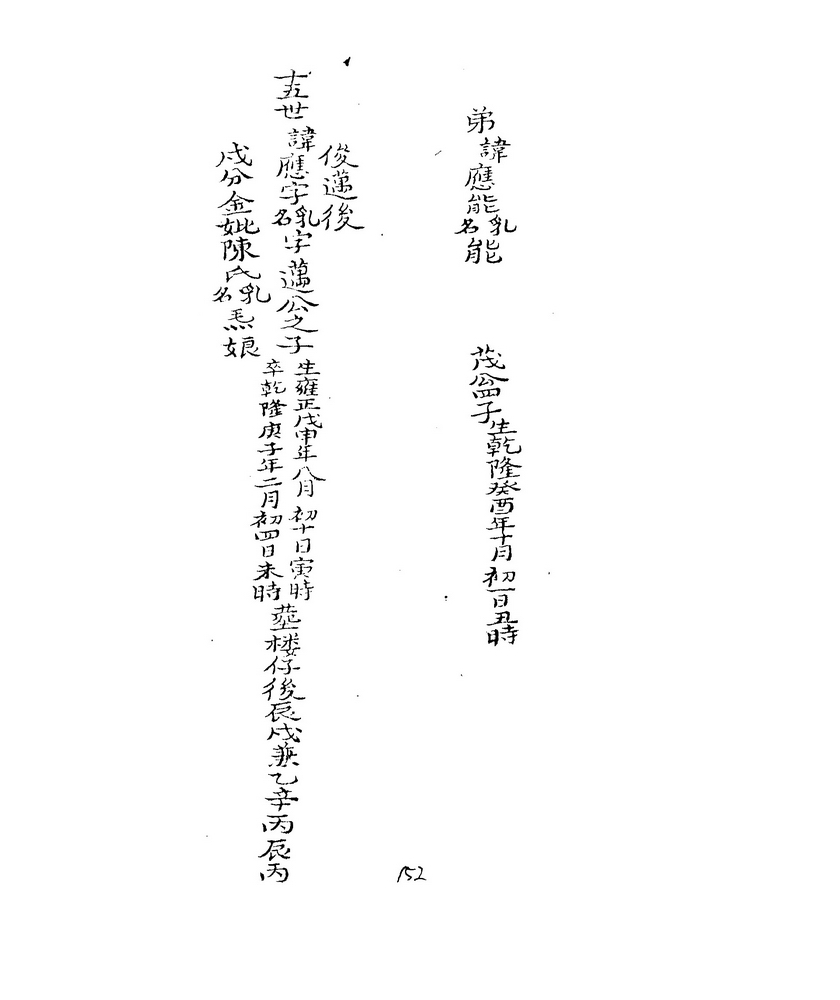 弟諱應能乳名能
茂盆子生乾隆癸酉年十月初一日丑時
俊邁後
十五世諱應字乳名字邁公之子
生雍正戊申年八月初十日寅時
卒乾隆庚子年二月初四日未時
塟楼仔後辰戌兼乙辛丙辰丙
戌分金妣陳氏乳名𤆬娘
152